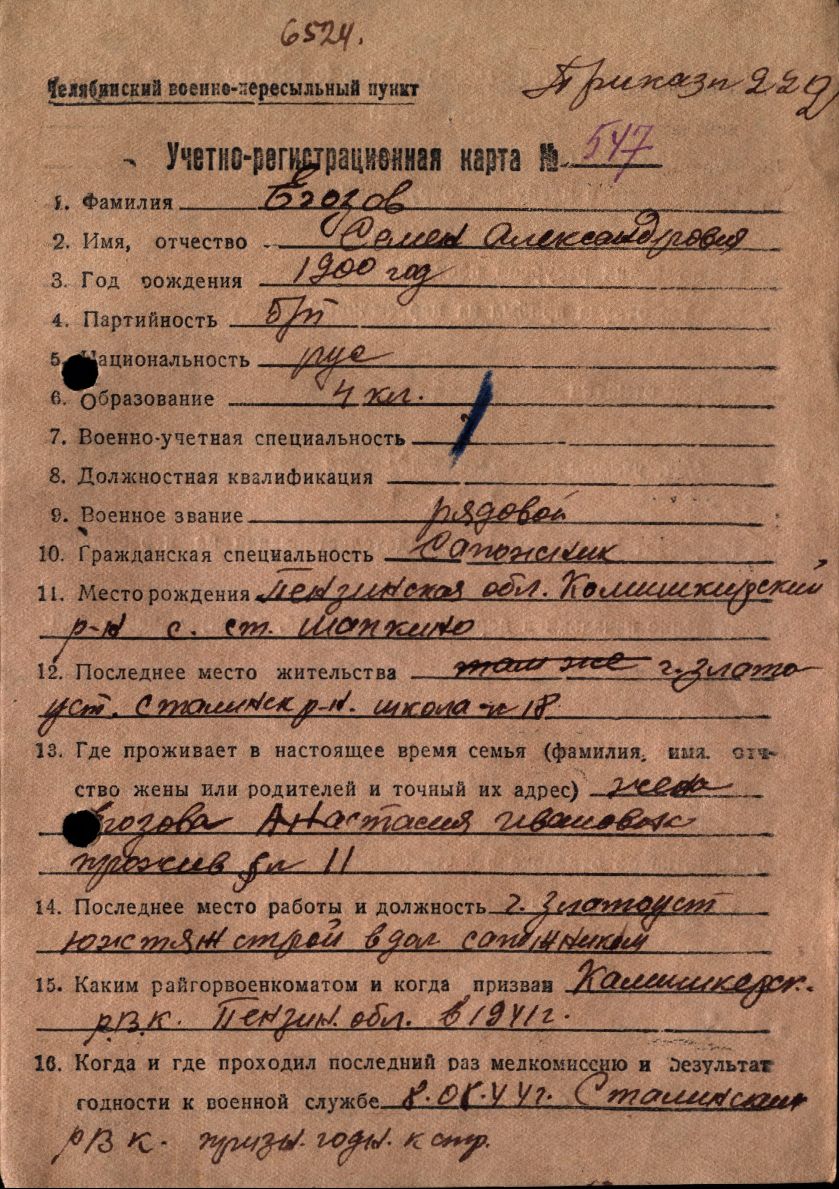 6524.
Челябинский военно-пересыльный пункт
Приказ № 229
Учетно-регистрационная карта № 547
1. Фамилия Егозов
2. Имя, отчество Семен Александрович
3. Год рождения 1900 год
4. Партийность б/п
5. Национальность рус
6. Образование 4 кл.
7. Военно-учетная специальность
8. Должностная квалификация
9. Военное звание рядовой
10. Гражданская специальность Сапожник
11. Место рождения Пензинская обл. Камишкирский
р-н с. ст. Шаткино
12. Последнее место жительства там же г. Злато
уст. Сталинск р-н. школа № 18
13. Где проживает в настоящее время семья (фамилия, имя. отче-
ство жены или родителей и точный их адрес) жена
Егозова Анастасия Ивановна
прожив 11
14. Последнее место работы и должность г. Златоуст
Южтяжстрой в дол сапожником
15. Каким райгорвоенкоматом и когда призван Камишкерск.
Р.В.К. Пензин. обл. в 1941 г.
16. Когда и где проходил последний раз медкомиссию и результат
годности к военной службе 8.08.44 г. Сталинским
РВК. призн. годн. к стр.